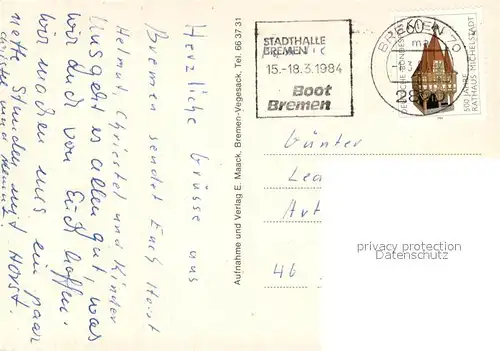 Herzliche Grüsse aus
Bremen sendet Euch Horst
Helmut, Christel und Kinder
Uns geht es allen gut, was
wir auch von Euch hoffen.
wir machen uns ein paar
nette Stunden mit Horst.
Christel und Helmut.
Aufnahme und Verlag E. Maack, Bremen-Vegesack, Tel. 66 37 31
STADTHALLE
BREMEN
15.-18.3.1984
Boot
Bremen
BREMEN 70
60
500 JAHRE
RATHAUS MICHELSTADT
Günter
46
privacy protection
Datenschutz